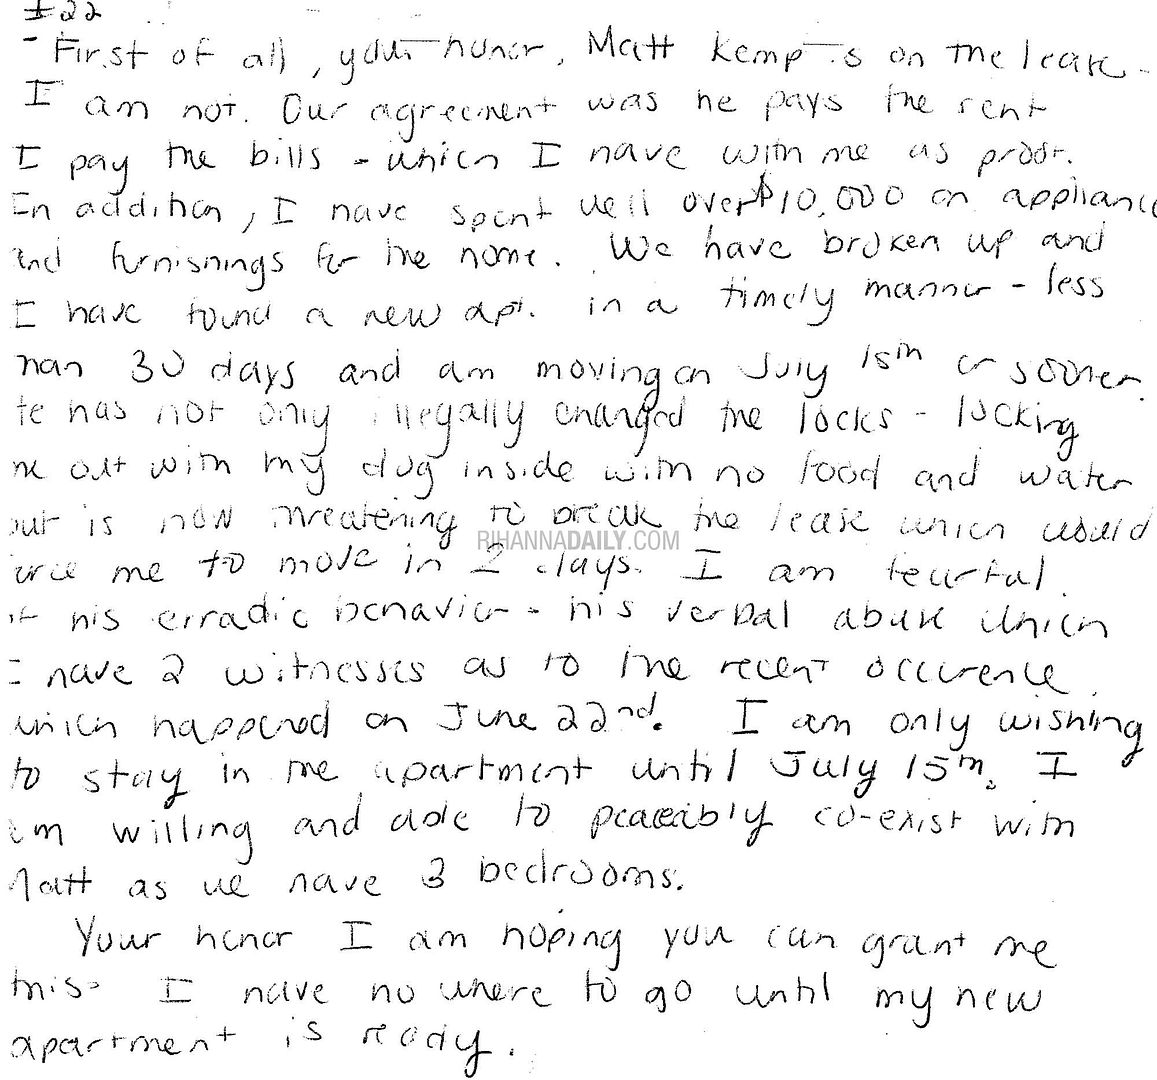 #22
- First of all, your honor, Matt Kemp is on the lease -
I am not. Our agreement was he pays the rent
I pay the bills - which I have with me as proof.
In addition, I have spent well over $10,000 on appliance
and furnishings for the home. We have broken up and
I have found a new apt. in a timely manner - less
han 30 days and am moving on July 15th or sooner.
He has not only illegally changed the locks - locking
me out with my dog inside with no food and water
but is now threatening to break the lease which would
RIHANNADAILY.COM
orce me to move in 2 days. I am fearful
of his erradic behavior - his verbal abuse which
I have 2 witnesses as to the recent occurence
which happened on June 22nd. I am only wishing
to stay in the apartment until July 15th. I
am willing and able to peaceably co-exist with
Matt as we have 3 bedrooms.
Your honor I am hoping you can grant me
this. I have no where to go until my new
apartment is ready.